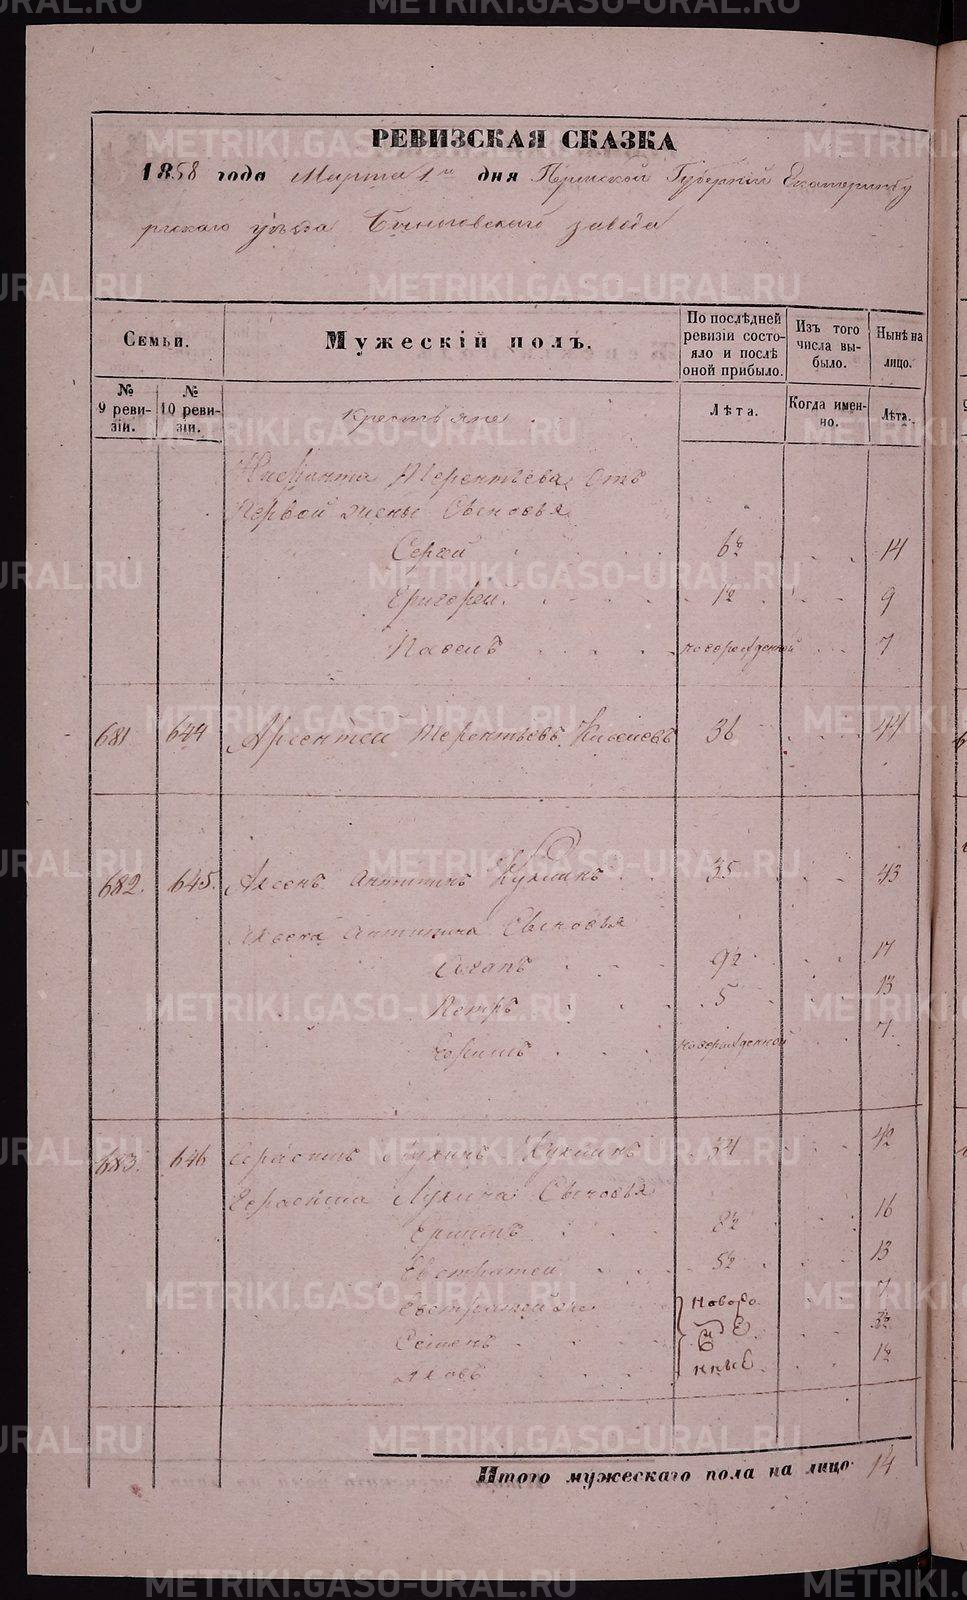 РЕВИЗСКАЯ СКАЗКА
1858 года Марта 1го дня Пермской Губерніи Екатеринбу
ргскаго уѣзда заведа
Семьи.
Мужескій полъ.
По послѣдней ревизіи состояло и послѣ оной прибыло.
Изъ того числа выбыло.
Нынѣ на лицо.
№ 9 ревизіи.
№ 10 ревизіи.
Лѣта.
Когда именно.
Лѣта.
крестьяне
Терентьева Отъ
Первой жены Сыновья
Сергей 6½ 14
Григорей 1½ 9
Павелъ новорожденной 7
681 644 Арсентей Терентьевъ 36 44
682. 645. Аксенъ Антипинъ Кукшинъ 35 43
Аксена Антипина Сыновья
9½ 17
Петръ 5 13
новорожденной 7
683. 646 Герасимъ Лукинъ Кукшинъ 34 42
Герасима Лукина Сыновья
8½ 16
Евстратей 5½ 13
новоро 7
Семенъ жде 3½
Яковъ нные 1½
Итого мужескаго пола на лицо 14
METRIKI.GASO-URAL.RU